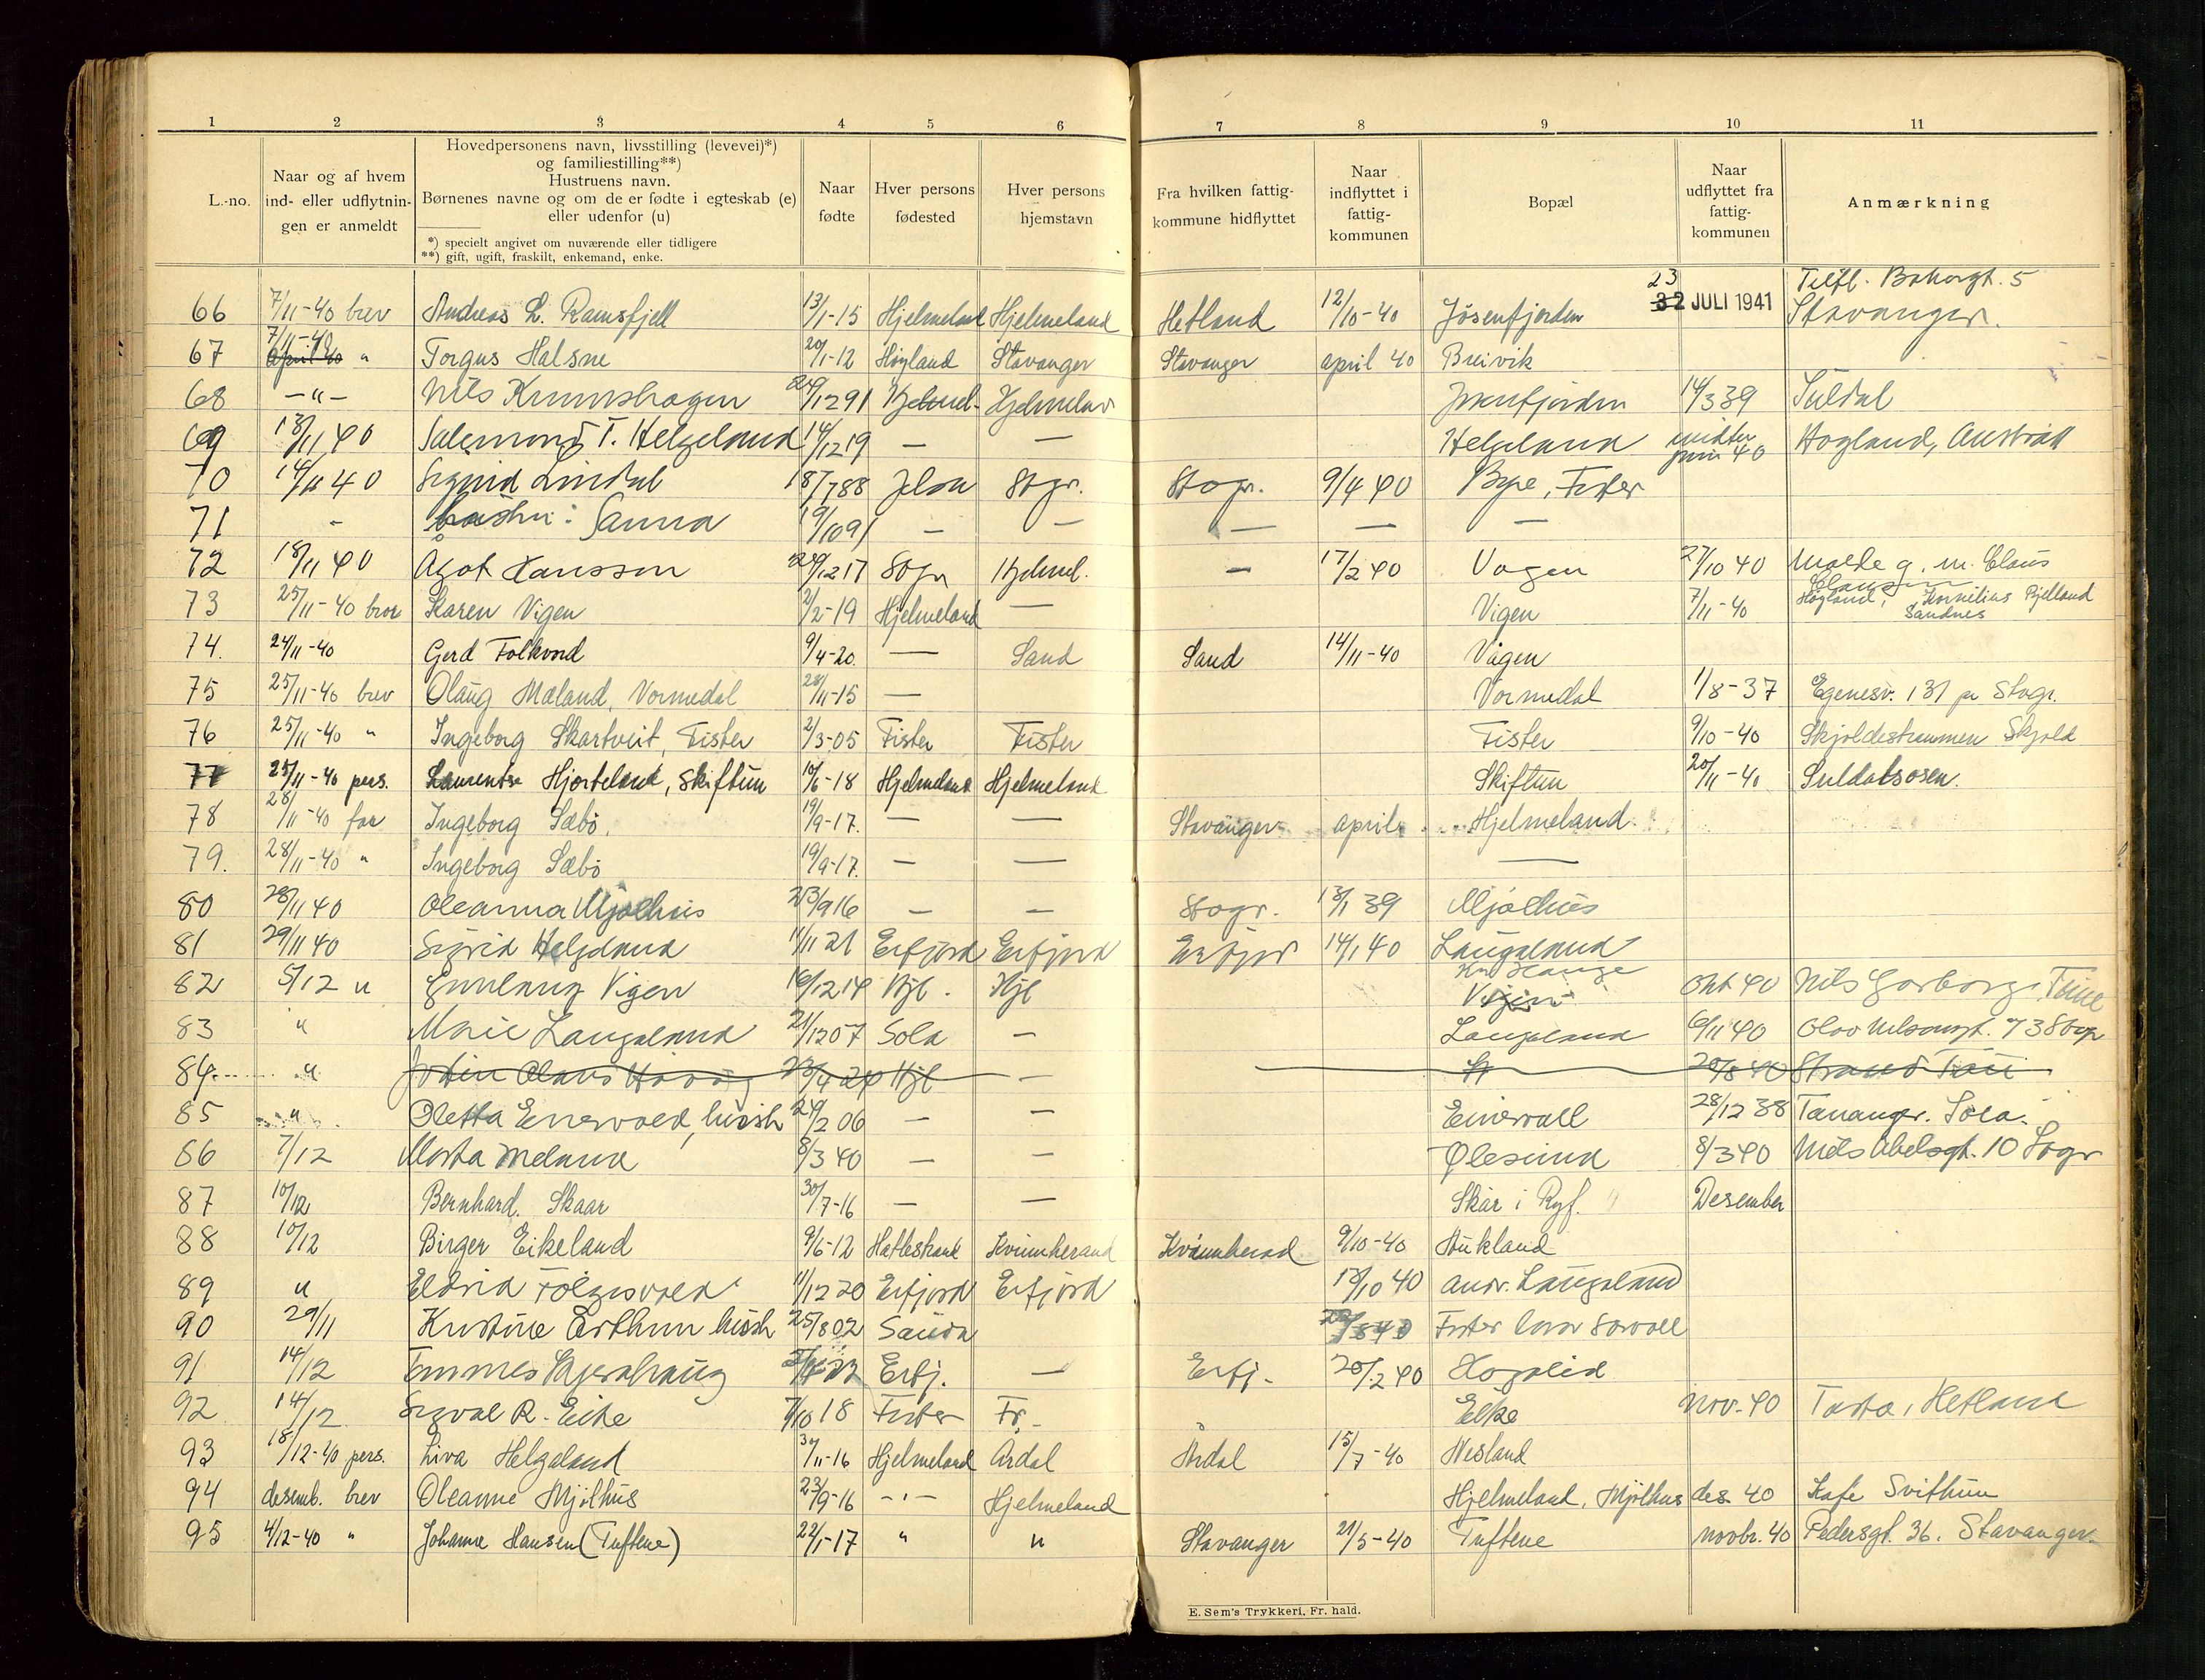 1 2 3 4 5 6 7 8 9 10 11
L.-no.
Naar og af hvem ind- eller udflytnin- gen er anmeldt
Hovedpersonens navn, livsstilling (levevei)*)
og familiestilling**)
Hustruens navn.
Børnenes navne og om de er fødte i egteskab (e)
eller udenfor (u)
*) specielt angivet om nuværende eller tidligere
**) gift, ugift, fraskilt, enkemand, enke.
Naar fødte
Hver persons fødested
Hver persons hjemstavn
Fra hvilken fattig- kommune hidflyttet
Naar indflyttet i fattig- kommunen
Bopæl
Naar udflyttet fra fattig- kommunen
Anmærkning
66 7/11-40 brev Andreas L. Ramsfjell 13/1-15 Hjelmeland Hjelmeland Hetland 12/10-40 Jøsenfjorden 23 JULI 1941 Stavanger.
67 7/11-40 " Torgus Halsne 20/1-12 Høyland Stavanger Stavanger april 40 Breivik
68 -"- Nils Krumshagen 24/12 91 Hjelmel. Hjelmelan Jøsenfjorden 14/3 39 Suldal
69 13/11 40 Salemond T. Helgeland 14/12 19 — — Helgeland midten juni 40 Høgland, Austrått
70 14/11 40 Sigurd Lindal 18/7 88 Jelsa Stgr. Stgr. 9/4 40 Bøe, Fister
71 - hustru: Sanna 19/10 91 — — — — —
72 18/11 40 Agot Hansson 24/12 17 Stgr Hjelmel. — 17/2 40 Vågen 27/10 40 Molde g. m. Claus Clausen
73 25/11-40 brev Karen Vigen 2/2-19 Hjelmeland — Vigen 7/11-40 Høgland, Kornelius Bjelland Sandnes
74. 24/11-40 Gerd Folkvord 9/4-20. — Sand Sand 14/11-40 Vågen
75 25/11-40 brev Olaug Mæland, Vormedal 28/11-15 — Vormedal 1/8-37 Egenesv. 131 Stvgr.
76 25/11-40 " Ingeborg Skartveit, Fister 2/3-05 Fister Fister Fister 9/10-40 Skjoldestraumen Skjold
77 25/11-40 pers. Laurentse Hjorteland, Skiftun 10/6-18 Hjelmeland Hjelmeland Skiftun 20/11-40 Suldalsosen.
78 28/11-40 far Ingeborg Sæbø. 19/9-17. — — Stavanger april Hjelmeland.
79. 28/11-40 " Ingeborg Sæbø 19/9-17. — — —
80 28/11 40 Oleanna Mjølhus 23/9 16 — — Stvgr. 13/1 39 Mjølhus
81 29/11 40 Sigrid Helgeland 11/11 21 Erfjord Erfjord Erfjor 14/1 40 Laugaland
82 5/12 " Gunlaug Vigen 16/12 14 Hjl. Hjl Vigen okt 40 Nils Garborg, Time
83 " Marie Laugaland 21/12 07 Sola — Laugaland 6/11 40 Olav Nilsensgt. 73 Stvgr
84 " Jostein Olaus 23/4 24 Hjl — 20/8 40 Strand Tau
85 " Oletta Eiesvoll, hush 24/2 06 — — Eiesvoll 28/12 38 Tananger. Sola.
86 7/12 Marta Meland 8/3 40 — — Ølesund 8/3 40 Nils Abelsgt. 10 Stvgr
87 10/12 Bernhard. Skaar 30/7-16 — — Skår i Ryf. Desember
88 10/12 Birger Eikeland 9/6-12 Hatlestrand Kvinnherand Kvinnherad 9/10-40 Hukland
89 " Eldrid Følgesvold 11/12 20 Erfjord Erfjord 13/10 40 Andr. Laugaland
90 29/11 Kristine Østhun hush 25/8 02 Sauda Fister
91 14/12 Tommes Erfj. — Erfj. 20/2 40 Høgalid
92 14/12 Sigval R. Eike 7/10 18 Fister Fr. Eike nov. 40 Tasta, Hetland
93 18/12-40 pers. Liva Helgaland 30/11-16 Hjelmeland Årdal Årdal 15/7-40 Nesland
94 desemb. brev Oleanne Mjølhus 23/9-16 -"- Hjelmeland Hjelmeland, Mjølhus des. 40 Kafe Svithun
95 4/12-40 " Johanne Hansen (Tuftene) 22/1-17 " " Stavanger 21/5-40 Tuftene novbr. 40 Pedersgt. 36. Stavanger.
E. Sem's Trykkeri, Fr. hald.